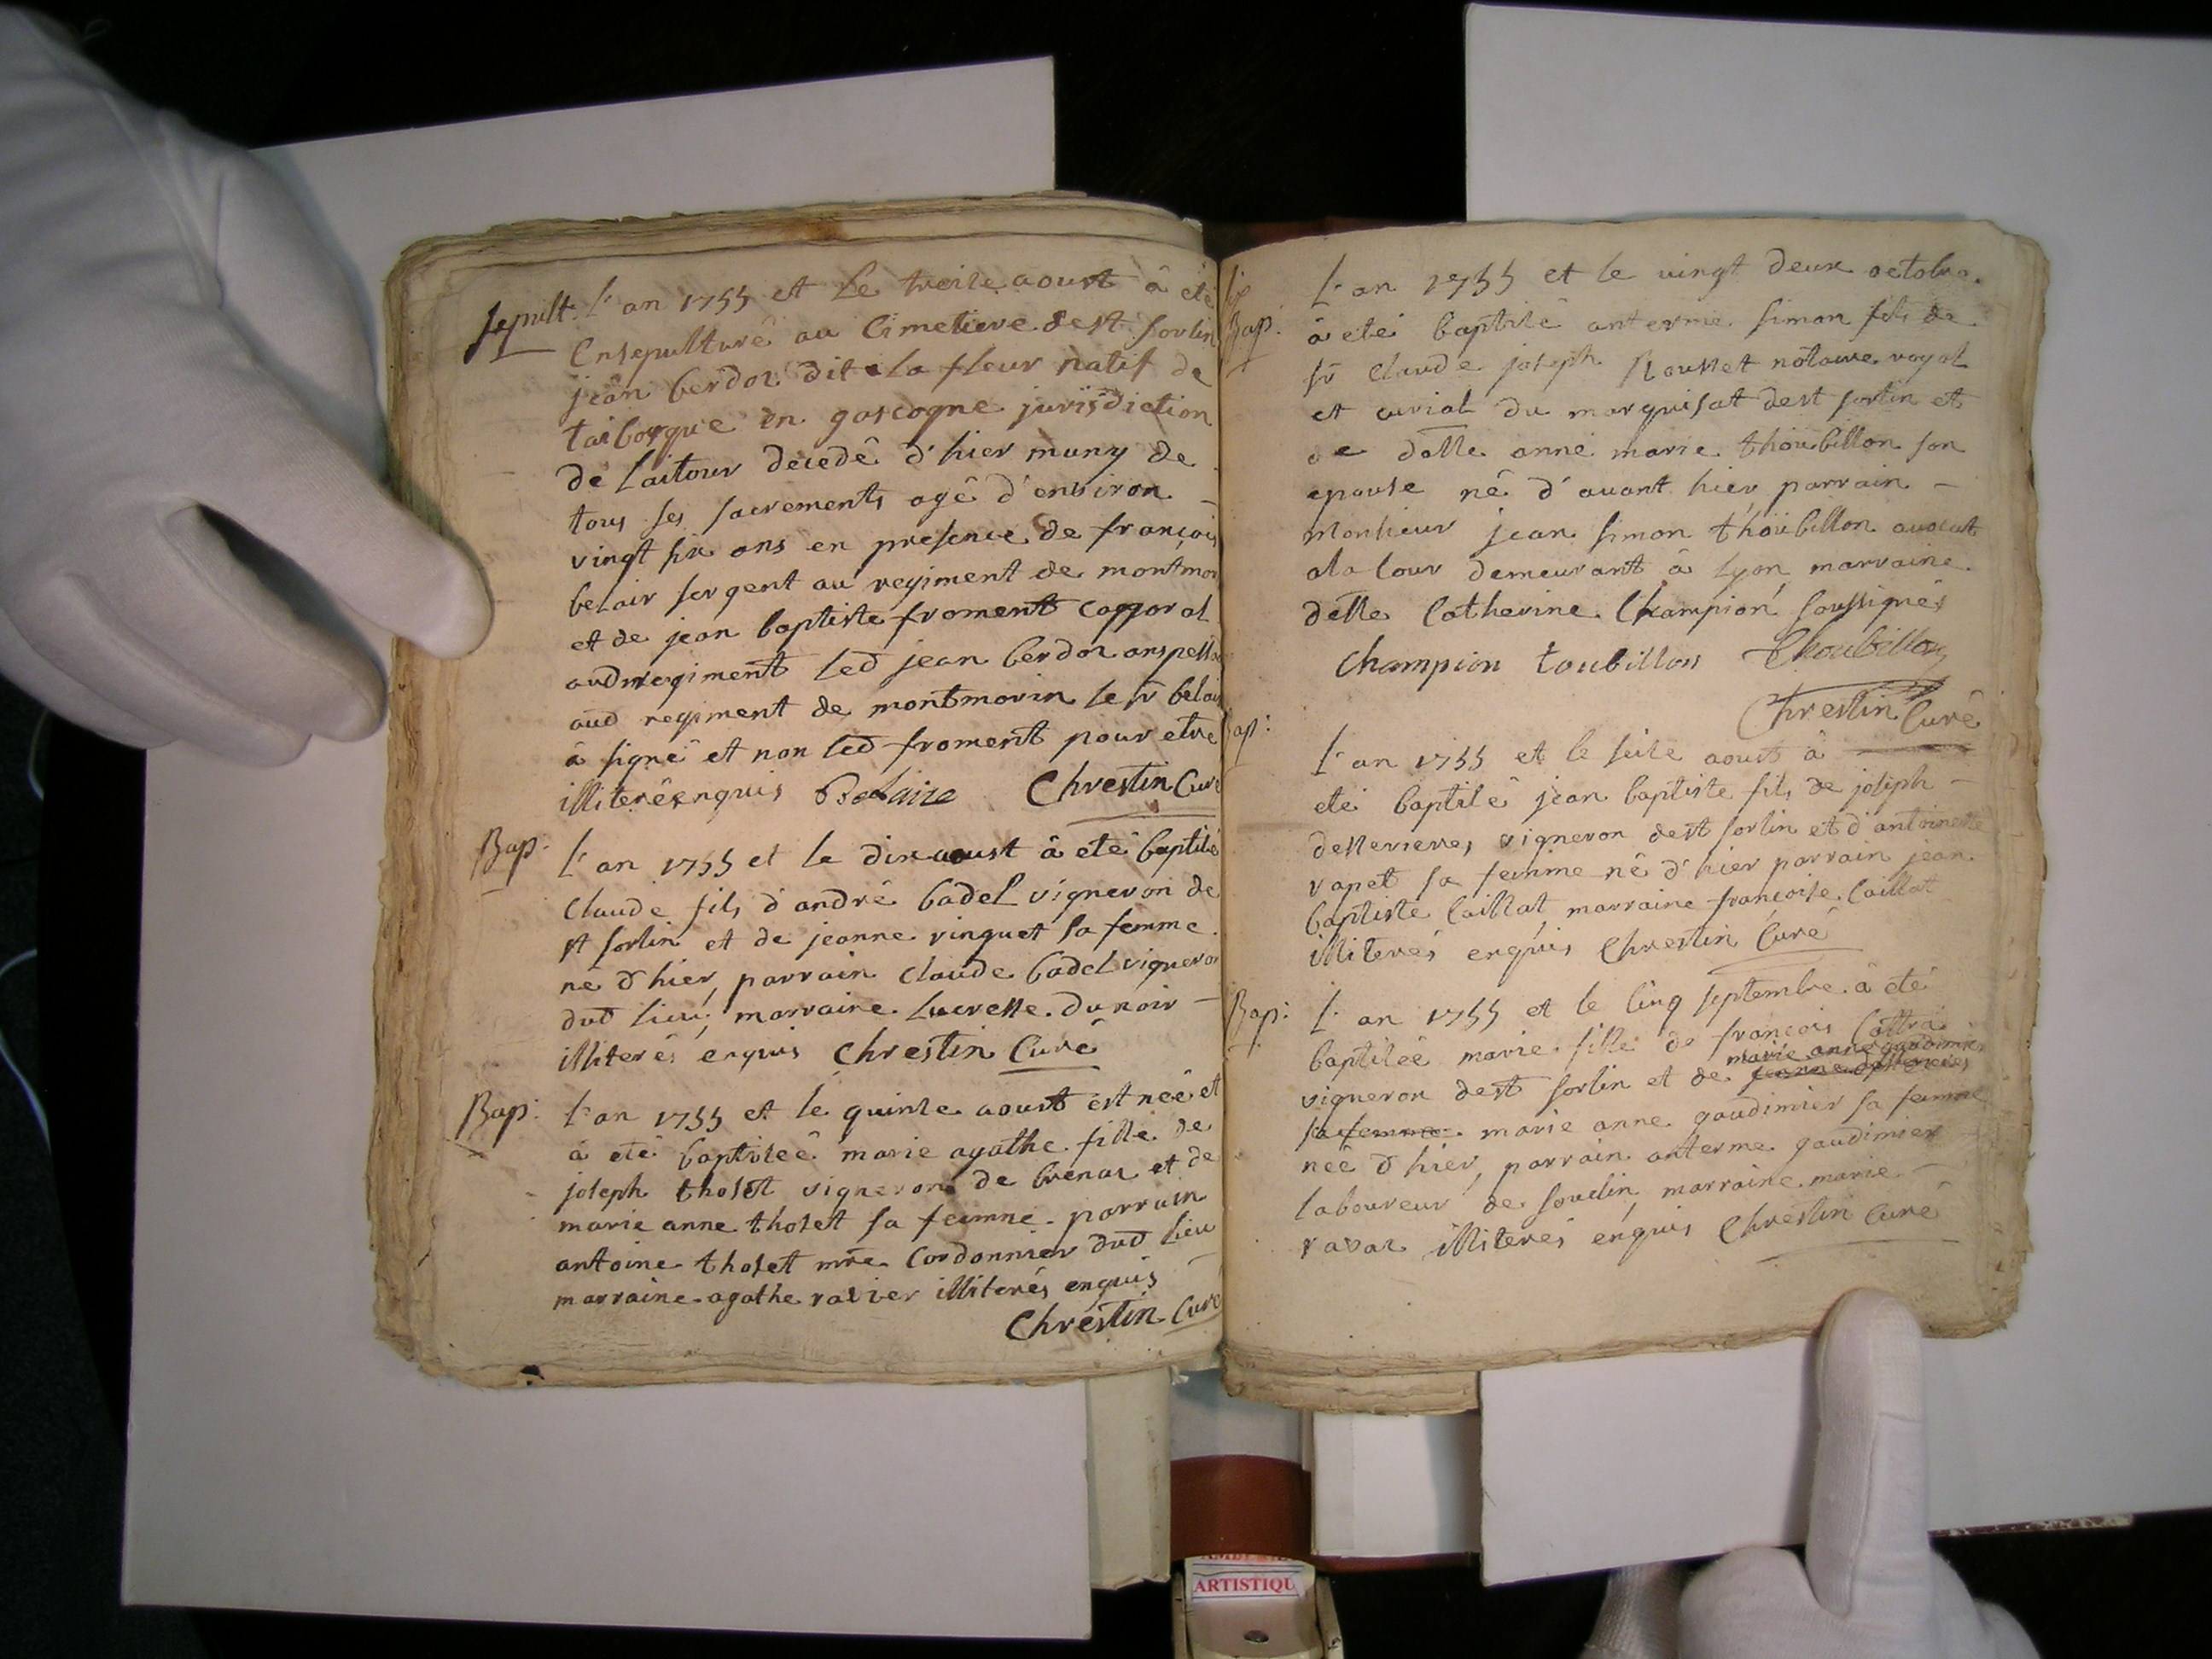 sepult. L'an 1755 et Le treize aoust à été
Ensepulturé au Cimetiere de st sorlin
jean berdoz dit la fleur natif de
en gascogne jurisdiction
de Laitour decedé d'hier muny de
tous ses sacrements agé d'environ
vingt six ans en presence de françois
belair sergent au regiment de montmor
et de jean baptiste froment capporal
aud regiment led jean berdoz
aud regiment de montmorin le sr belair
à signé et non led froment pour etre
illiteré enquis Belaire Chrestin Curé
Bap. L'an 1755 et le dix aoust à eté baptisé
claude fils d'andré badel vigneron de
st sorlin et de jeanne vinguet sa femme
né d'hier, parrain claude badel vigneron
dud lieu, marraine Lucresse du noir
illiterés enquis Chrestin Curé
Bap: L'an 1755 et le quinze aoust est neé et
à eté baptiseé marie agathe fille de
joseph thoset vigneron de brenaz et de
marie anne thoset sa femme. parrain
antoine thoset mre Cordonnier dud lieu
marraine agathe ravier illiterés enquis
Chrestin Curé
Bap: L'an 1755 et le vingt deux octobre
à eté baptisé anterme simon fils de
sr claude joseph Rousset notaire royal
et curial du marquisat de st sorlin et
de dlle anne marie thoubillon son
epouse né d'avant hier, parrain
Monsieur jean simon thoubillon avocat
ala Cour demeurant à Lyon, marraine
delle Catherine Champion soussignés
Champion toubillon Thoubillon
Chrestin Curé
Bap: L'an 1755 et le seize aoust à
eté baptisé jean baptiste fils de joseph
desserieres vigneron de st sorlin et d'antoinette
vapet sa femme né d'hier parrain jean
baptiste Caillat marraine françoise Caillat
illiterés enquis Chrestin Curé
Bap: L'an 1755 et le Cinq septembre à eté
baptiseé marie fille de françois
marie anne gaudimier
vigneron de st sorlin et de jeanne desserieres
sa femme marie anne gaudimier sa femme
neé d'hier, parrain anterme gaudimier
laboureur de soudin, marraine marie
ravaz illiterés enquis Chrestin Curé
ARTISTIQU